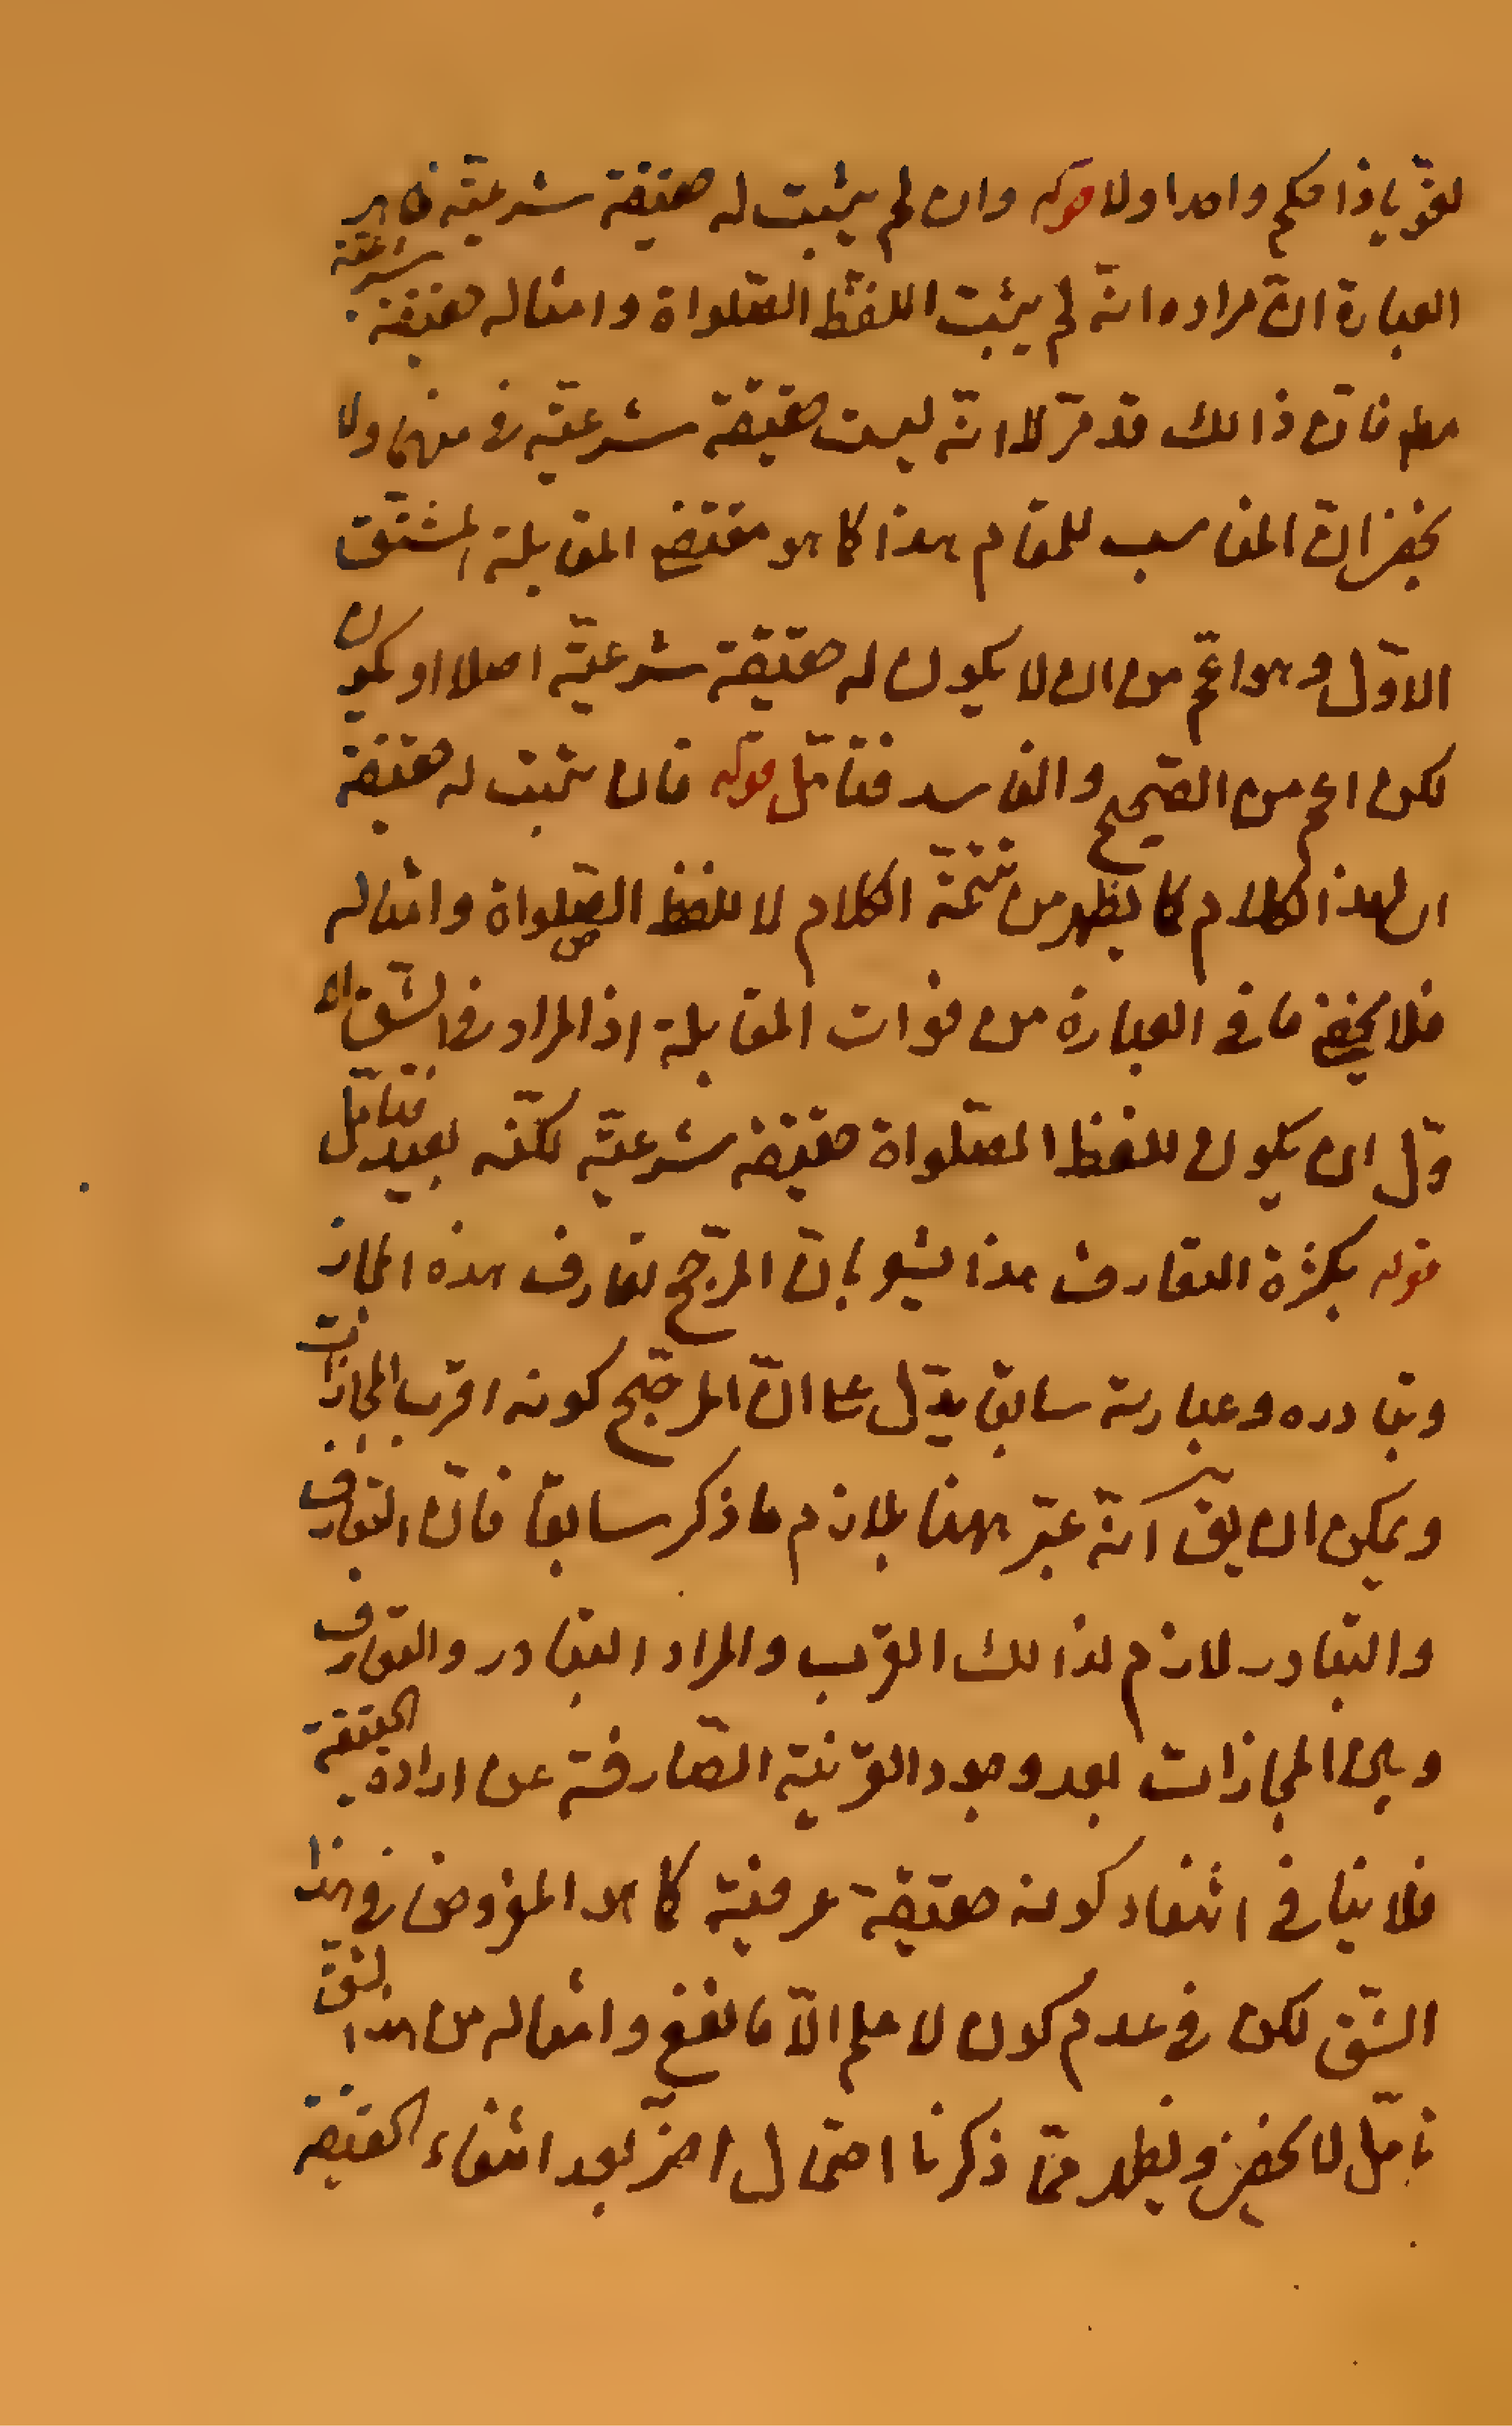 لغويا ذا حكم واحد اولا قوله وان لم يثبت له حقيقة شرعيّة ظاهر
العبارة انّ مراده انّه لم يثبت اللفظ الصّلواة وامثاله حقيقة شرعيّة
مط فانّ ذالك قد مرّ لا انّه ليست حقيقة شرعيّة في ولا
يخفى انّ المناسب للمقام هذا كما هو مقتضى المقابلة المشتّق
الاوّل وهو اعمّ من ان لا يكون له حقيقة شرعيّة اصلا او يكون
لكن اعم من الصّحيح والفاسد فتامّل قوله فان ثبت له حقيقة
ان لهذا الكلام كما يظهر من تتمّة الكلام لا للفظ الصّلواة وامثاله
فلا يخفى ما في العبارة من فوات المقابلة اذ المراد في الشّق الا
وّل ان يكون للفظ الصّلواة حقيقة شرعيّة لكنّه بعيد فتامّل
قوله بكثرة التعارف هذا يشعر بانّ المرجّح تعارف هذه المجاز
وتبادره وعبارته سابقا يدّل على انّ المرجّح كونه اقرب المجازات
ويمكن ان يقّ انّه عبّر بهنا بلازم ما ذكر سابقا فانّ التعارف
والتبادر لازم لذالك القرب والمراد التبادر والتعارف
وبين المجازات بعد وجود القرنية الصّارفة عن ارادة الحقيقة
فلا ينافي انتفاء كونه حقيقة عرفيّة كما هو المفروض في هذا
الشّق لكن في عدم كون لا علم الّا ما نفع وامثاله من هذا الشقّ
تامّل لا يخفى ويظهر ممّا ذكرنا احتمال اخرّ بعد انتفاء الحقيقة